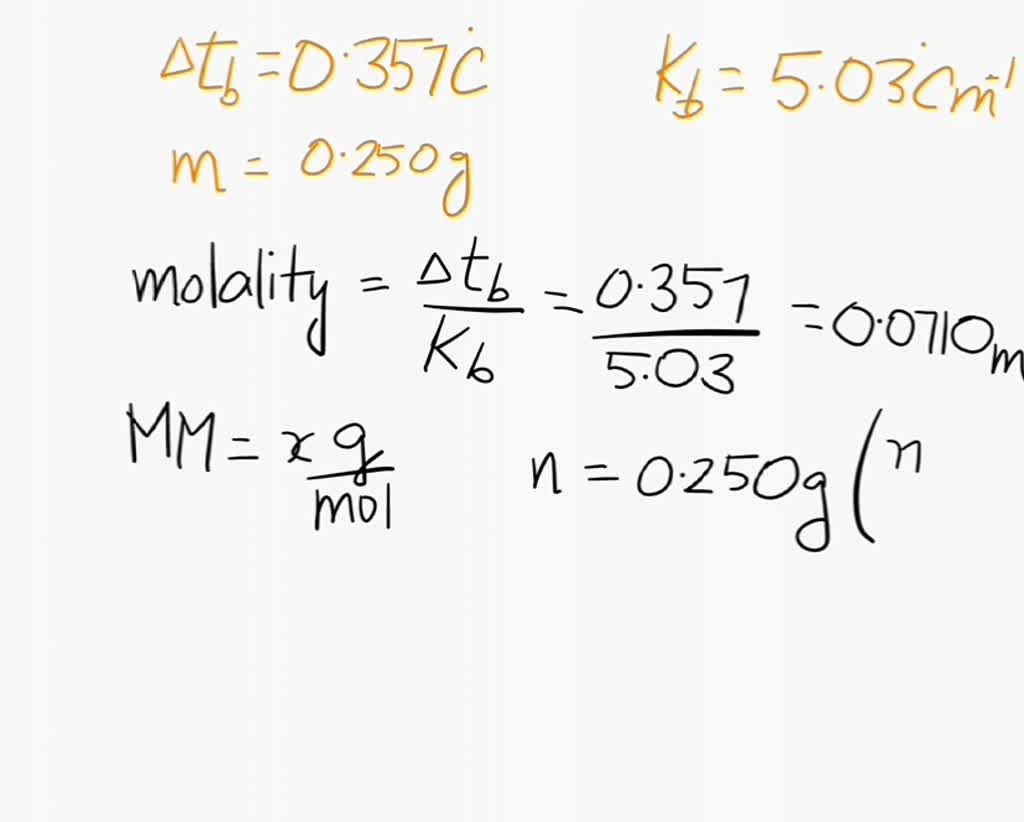 Δt_b = 0.357°C K_b = 5.03°C m⁻¹
m = 0.250g
molality = Δt_b / K_b = 0.357 / 5.03 = 0.0710 m
MM = x g/mol n = 0.250g (n